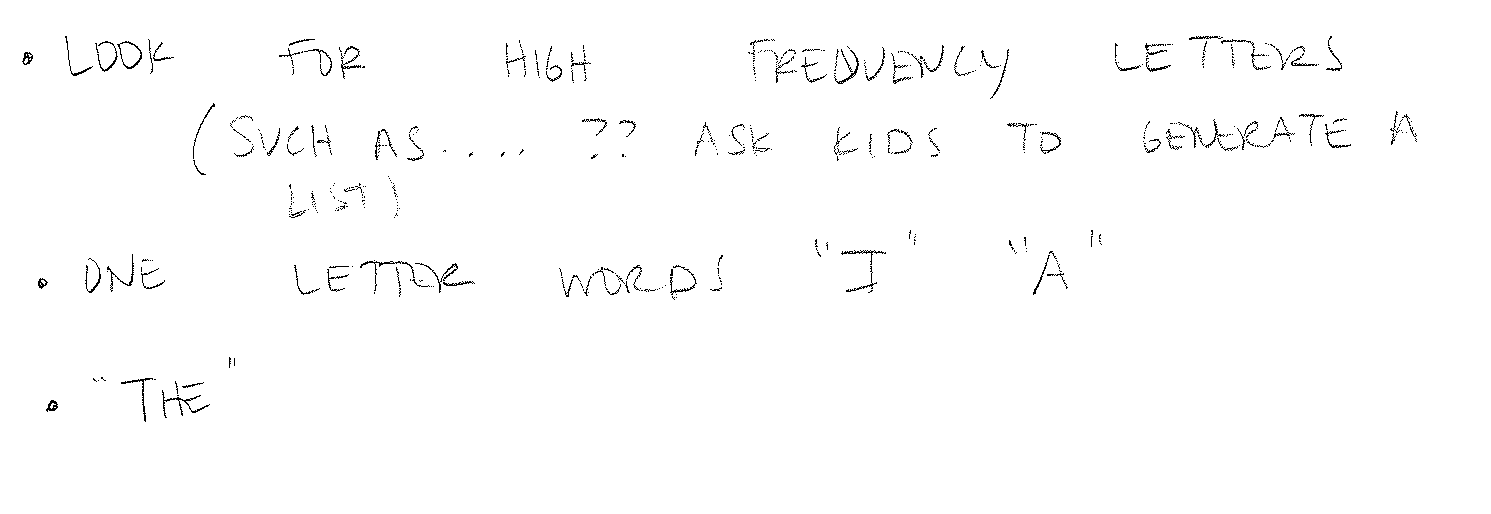 • LOOK FOR HIGH FREQUENCY LETTERS
(SUCH AS.... ?? ASK KIDS TO GENERATE A
LIST)
• ONE LETTER WORDS "I" "A"
• "THE"